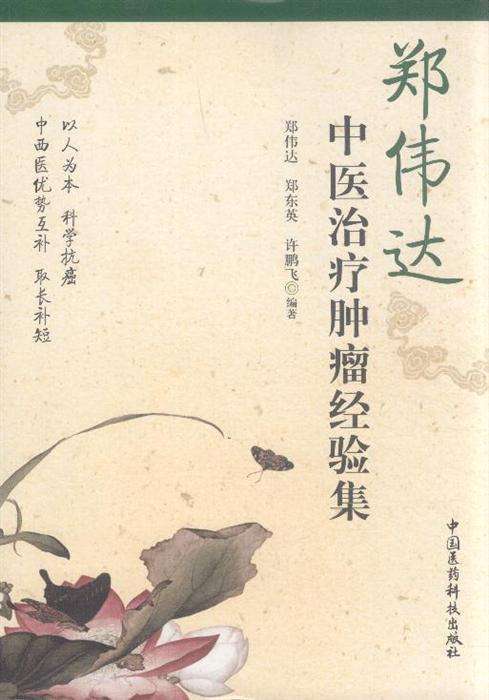 郑伟达
中医治疗肿瘤经验集
郑伟达 郑东英 许鹏飞◎编著
以人为本 科学抗癌
中西医优势互补 取长补短
中国医药科技出版社